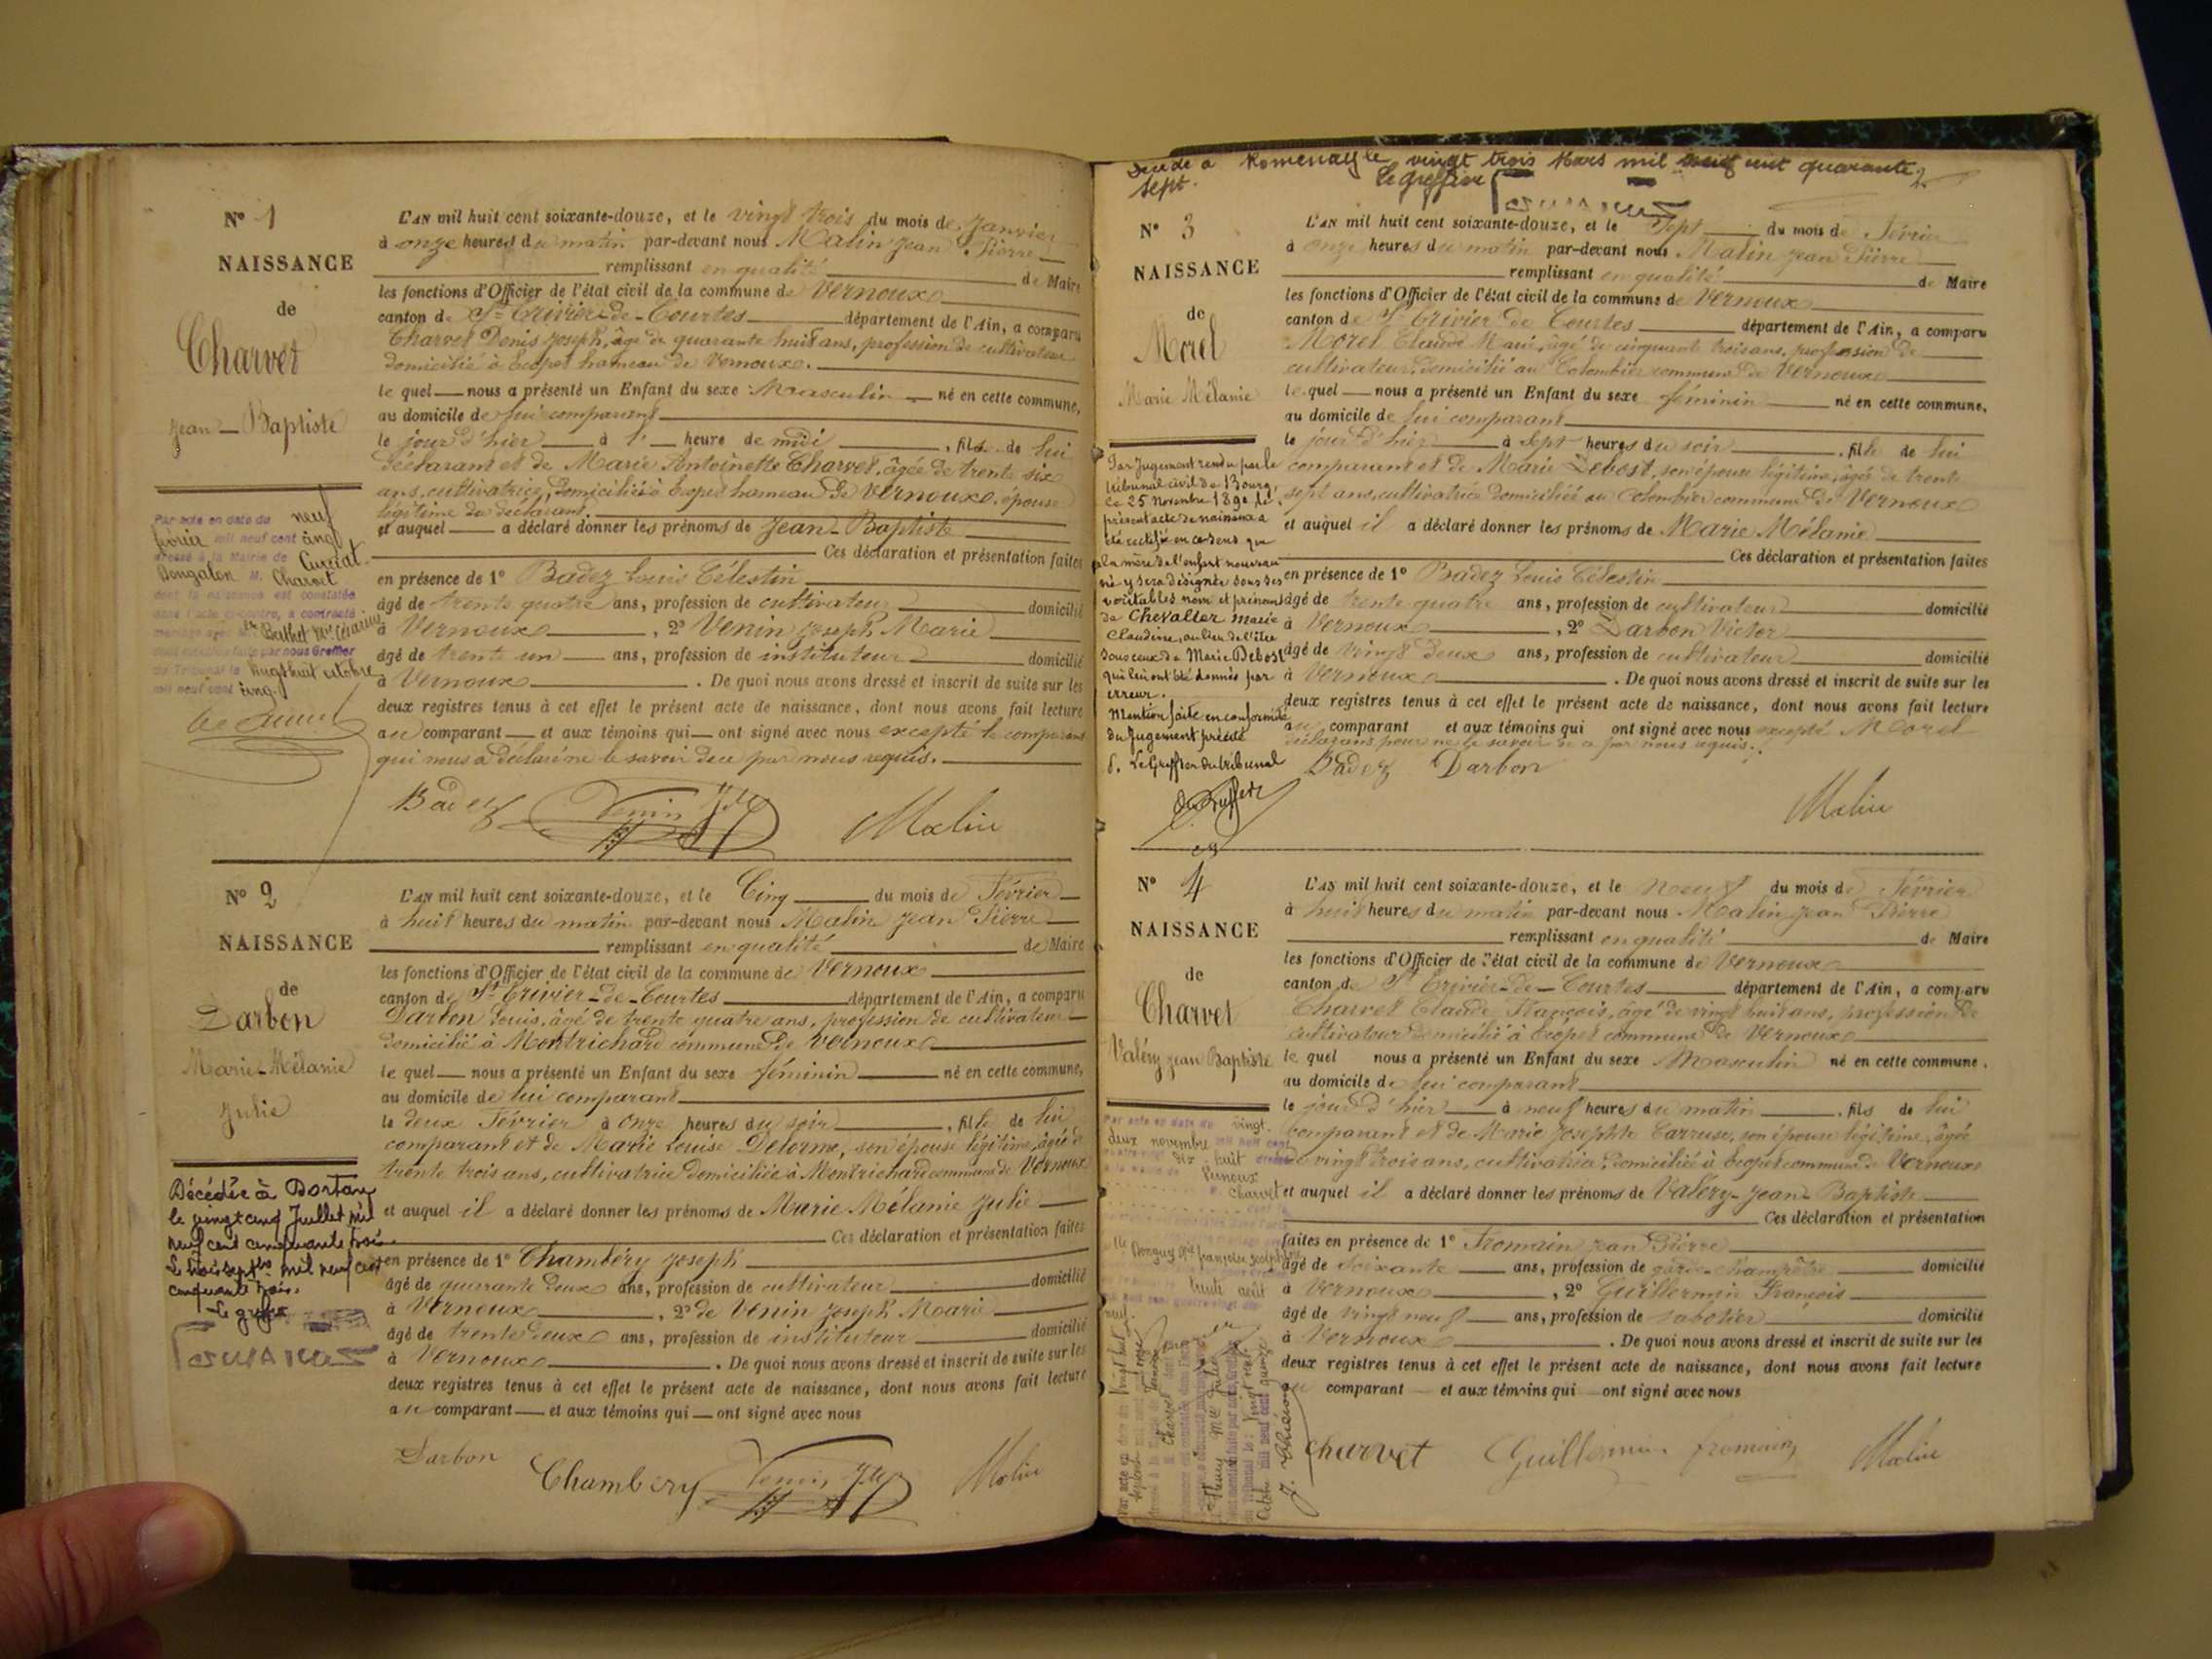 N° 1
NAISSANCE
de
Charvet
Jean-Baptiste
Par acte en date du neuf
février mil neuf cent cinq
dressé à la Mairie de Cuisiat
M. Charvet
dont la naissance est constatée
dans l'acte ci-contre, a contracté
mariage avec Berthet
par nous Greffier
du Tribunal le vingt huit octobre
mil neuf cent cinq.
L'AN mil huit cent soixante-douze, et le vingt trois du mois de Janvier
à onze heures du matin par-devant nous Malin Jean Pierre
remplissant en qualité de Maire
les fonctions d'Officier de l'état civil de la commune de Vernoux
canton de St Trivier-de-Courtes département de l'Ain, a comparu
Charvet Denis Joseph, âgé de quarante huit ans, profession de cultivateur
domicilié à Ecopet hameau de Vernoux.
le quel nous a présenté un Enfant du sexe Masculin né en cette commune,
au domicile de lui comparant
le jour d'hier à 1' heure de midi, fils de lui
déclarant et de Marie Antoinette Charvet, âgée de trente six
ans, cultivatrice, domiciliée à Ecopet hameau de Vernoux, épouse
légitime du déclarant.
et auquel a déclaré donner les prénoms de Jean-Baptiste
Ces déclaration et présentation faites
en présence de 1° Badez Louis Célestin
âgé de trente quatre ans, profession de cultivateur domicilié
à Vernoux, 2° Venin Joseph Marie
âgé de trente un ans, profession de instituteur domicilié
à Vernoux. De quoi nous avons dressé et inscrit de suite sur les
deux registres tenus à cet effet le présent acte de naissance, dont nous avons fait lecture
au comparant et aux témoins qui ont signé avec nous excepté le comparant
qui nous a déclaré ne le savoir de ce par nous requis.
Badez Venin Malin
N° 2
NAISSANCE
de
Darbon
Marie-Mélanie
Julie
Décédée à Dortan
le vingt cinq Juillet mil
neuf cent cinquante trois
Le trois septbre mil neuf cent
cinquante trois.
Le greffier
L'AN mil huit cent soixante-douze, et le Cinq du mois de Février
à huit heures du matin par-devant nous Malin Jean Pierre
remplissant en qualité de Maire
les fonctions d'Officier de l'état civil de la commune de Vernoux
canton de St Trivier-de-Courtes département de l'Ain, a comparu
Darbon Louis, âgé de trente quatre ans, profession de cultivateur
domicilié à Montrichard commune de Vernoux
le quel nous a présenté un Enfant du sexe féminin né en cette commune,
au domicile de lui comparant
le deux Février à onze heures du soir, fille de lui
comparant et de Marie Louise Delorme, son épouse légitime, âgée de
trente trois ans, cultivatrice domiciliée à Montrichard commune de Vernoux
et auquel il a déclaré donner les prénoms de Marie Mélanie Julie
Ces déclaration et présentation faites
en présence de 1° Chambéry Joseph
âgé de quarante deux ans, profession de cultivateur domicilié
à Vernoux, 2° de Venin Joseph Marie
âgé de trente deux ans, profession de instituteur domicilié
à Vernoux. De quoi nous avons dressé et inscrit de suite sur les
deux registres tenus à cet effet le présent acte de naissance, dont nous avons fait lecture
au comparant et aux témoins qui ont signé avec nous
Darbon Chambery Venin Malin
Décédé à Romenay le vingt trois Mars mil neuf cent quarante
sept. Le greffier
N° 3
NAISSANCE
de
Morel
Marie Mélanie
Par Jugement rendu par le
tribunal civil de Bourg,
le 25 Novembre 1890 le
présent acte de naissance a
été rectifié en ce sens que
la mère de l'enfant nouveau
né y sera désignée sous ses
véritables nom et prénoms
de Chevalier Marie
Claudine, au lieu de l'être
sous ceux de Marie Debost
qui lui ont été donnés par
erreur.
Mention faite en conformité
du Jugement précité
Le Greffier du tribunal
L'AN mil huit cent soixante-douze, et le Sept du mois de Février
à onze heures du matin par-devant nous Malin Jean Pierre
remplissant en qualité de Maire
les fonctions d'Officier de l'état civil de la commune de Vernoux
canton de St Trivier de Courtes département de l'Ain, a comparu
Morel Claude Marie, âgé de cinquante trois ans, profession de
cultivateur, domicilié au Colombier commune de Vernoux
le quel nous a présenté un Enfant du sexe féminin né en cette commune,
au domicile de lui comparant
le jour d'hier à sept heures du soir, fille de lui
comparant et de Marie Debost, son épouse légitime, âgée de trente
sept ans, cultivatrice domiciliée au Colombier commune de Vernoux
et auquel il a déclaré donner les prénoms de Marie Mélanie
Ces déclaration et présentation faites
en présence de 1° Badez Louis Célestin
âgé de trente quatre ans, profession de cultivateur domicilié
à Vernoux, 2° Darbon Victor
âgé de vingt deux ans, profession de cultivateur domicilié
à Vernoux. De quoi nous avons dressé et inscrit de suite sur les
deux registres tenus à cet effet le présent acte de naissance, dont nous avons fait lecture
au comparant et aux témoins qui ont signé avec nous excepté Morel
déclarant pour ne le savoir de ce par nous requis.
Badez Darbon
Malin
N° 4
NAISSANCE
de
Charvet
Valéry Jean Baptiste
Par acte en date du vingt-
deux novembre mil huit cent
dix-huit
Vernoux
Charvet
trente août
L'AN mil huit cent soixante-douze, et le Neuf du mois de Février
à huit heures du matin par-devant nous Malin Jean Pierre
remplissant en qualité de Maire
les fonctions d'Officier de l'état civil de la commune de Vernoux
canton de St Trivier-de-Courtes département de l'Ain, a comparu
Charvet Claude François, âgé de vingt huit ans, profession de
cultivateur domicilié à Ecopet commune de Vernoux
le quel nous a présenté un Enfant du sexe Masculin né en cette commune,
au domicile de lui comparant
le jour d'hier à neuf heures du matin, fils de lui
comparant et de Marie Josephte Carruse, son épouse légitime, âgée
de vingt trois ans, cultivatrice domiciliée à Ecopet commune de Vernoux
et auquel il a déclaré donner les prénoms de Valéry-Jean-Baptiste
Ces déclaration et présentation
faites en présence de 1° Fromain Jean Pierre
âgé de soixante ans, profession de garde-champêtre domicilié
à Vernoux, 2° Guillermin François
âgé de vingt neuf ans, profession de sabotier domicilié
à Vernoux. De quoi nous avons dressé et inscrit de suite sur les
deux registres tenus à cet effet le présent acte de naissance, dont nous avons fait lecture
au comparant et aux témoins qui ont signé avec nous
Charvet Guillermin fromain Malin